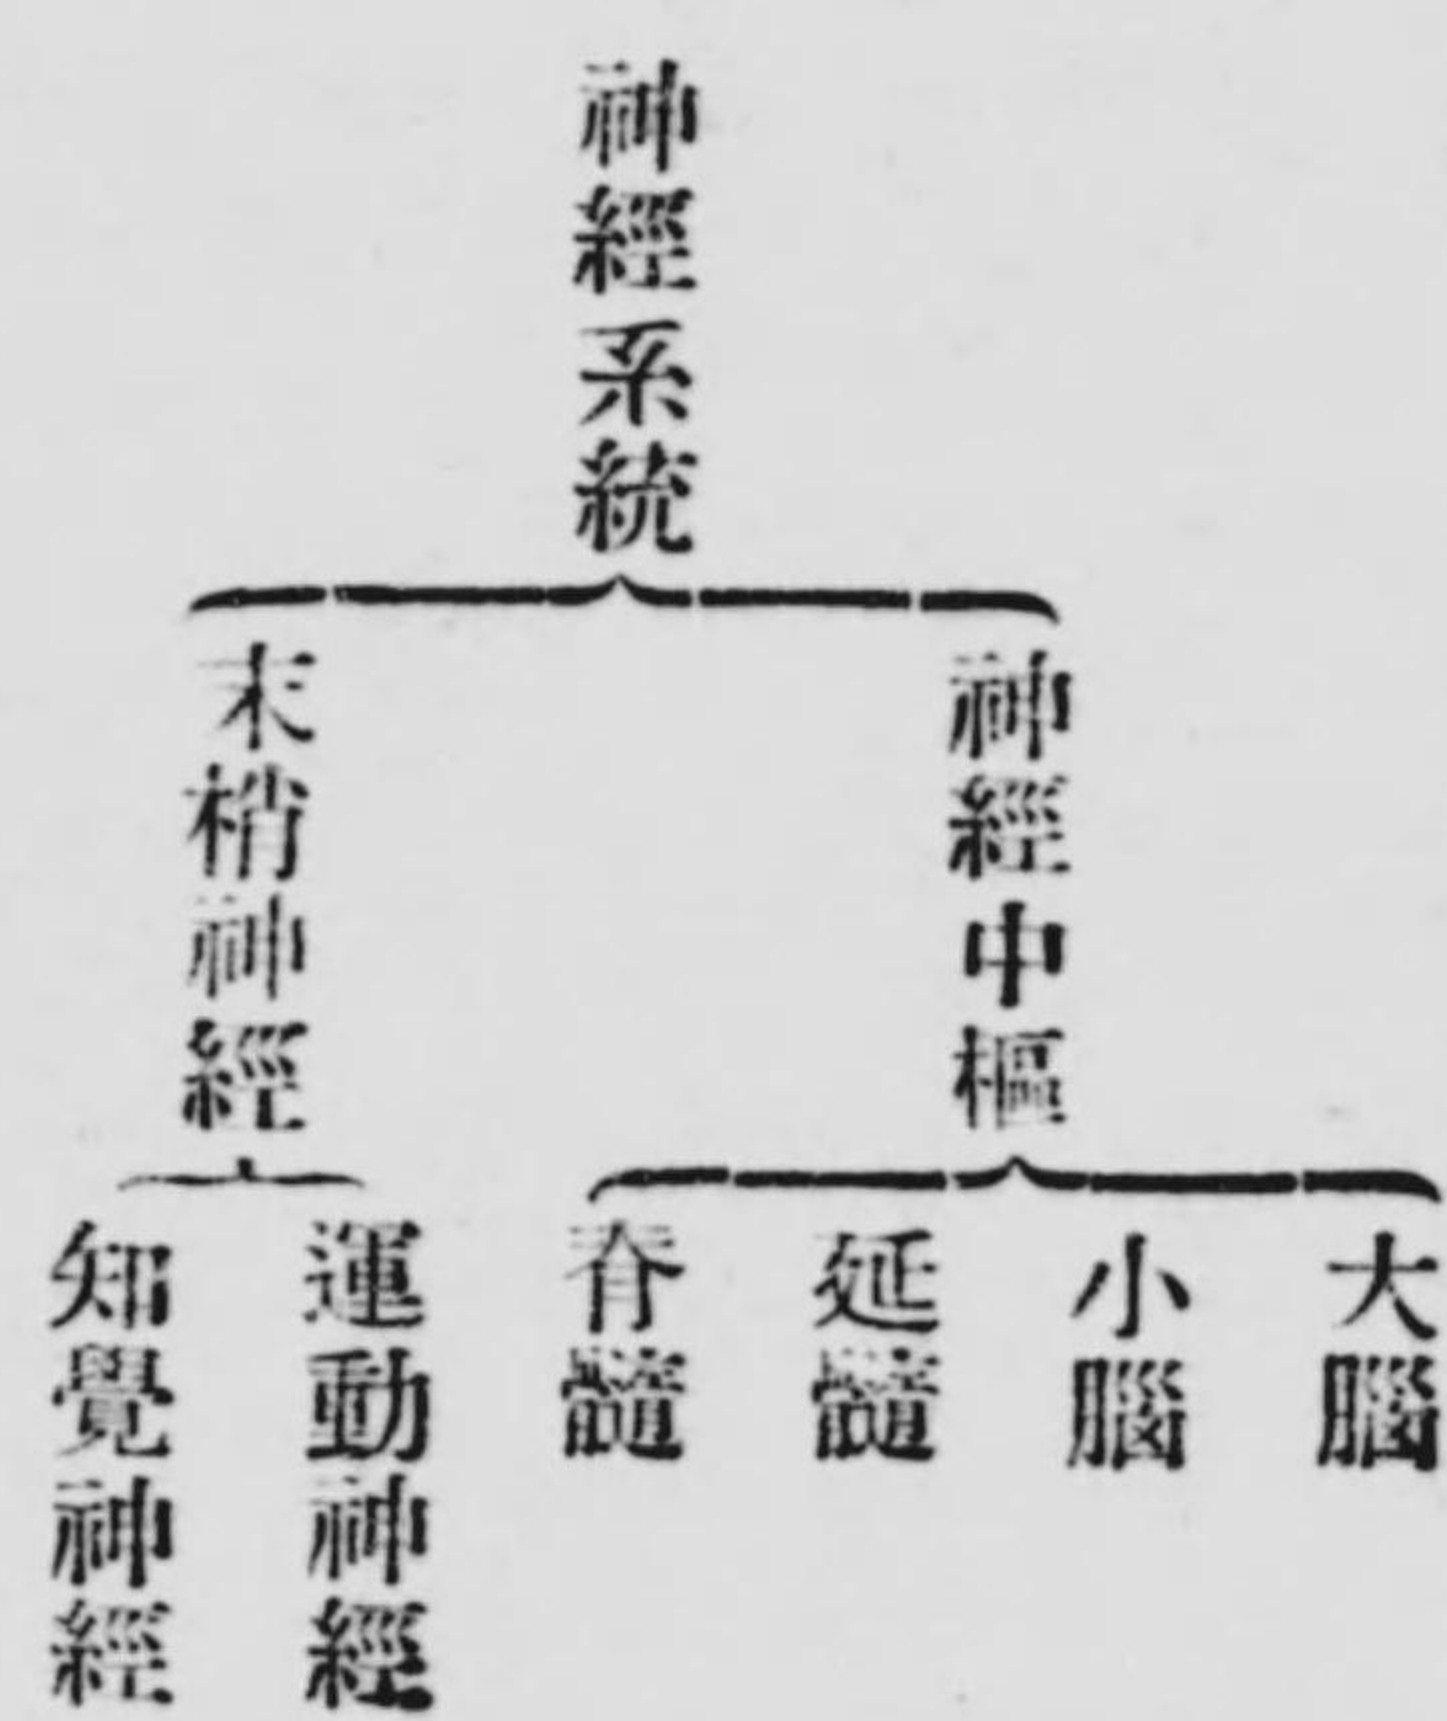 神經系統
神經中樞
大腦
小腦
延髓
脊髓
末梢神經
運動神經
知覺神經